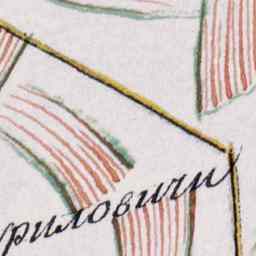 риловичи